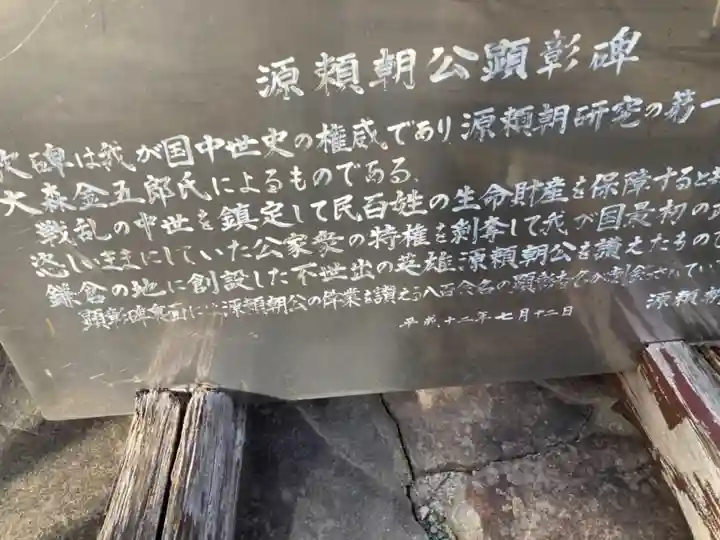 源頼朝公顕彰碑
碑は我が国中世史の権威であり源頼朝研究の第一
大森金五郎氏によるものである。
戦乱の中世を鎮定して民百姓の生命財産を保障すると
恣しいままにしていた公家衆の特権を剥奪して我が国最初の
鎌倉の地に創設した不世出の英雄源頼朝公を讃えたもの
顕彰碑裏面には源頼朝公の偉業を讃える八百余名の顕彰者名が刻金されてい
平成十二年七月十二日
源頼